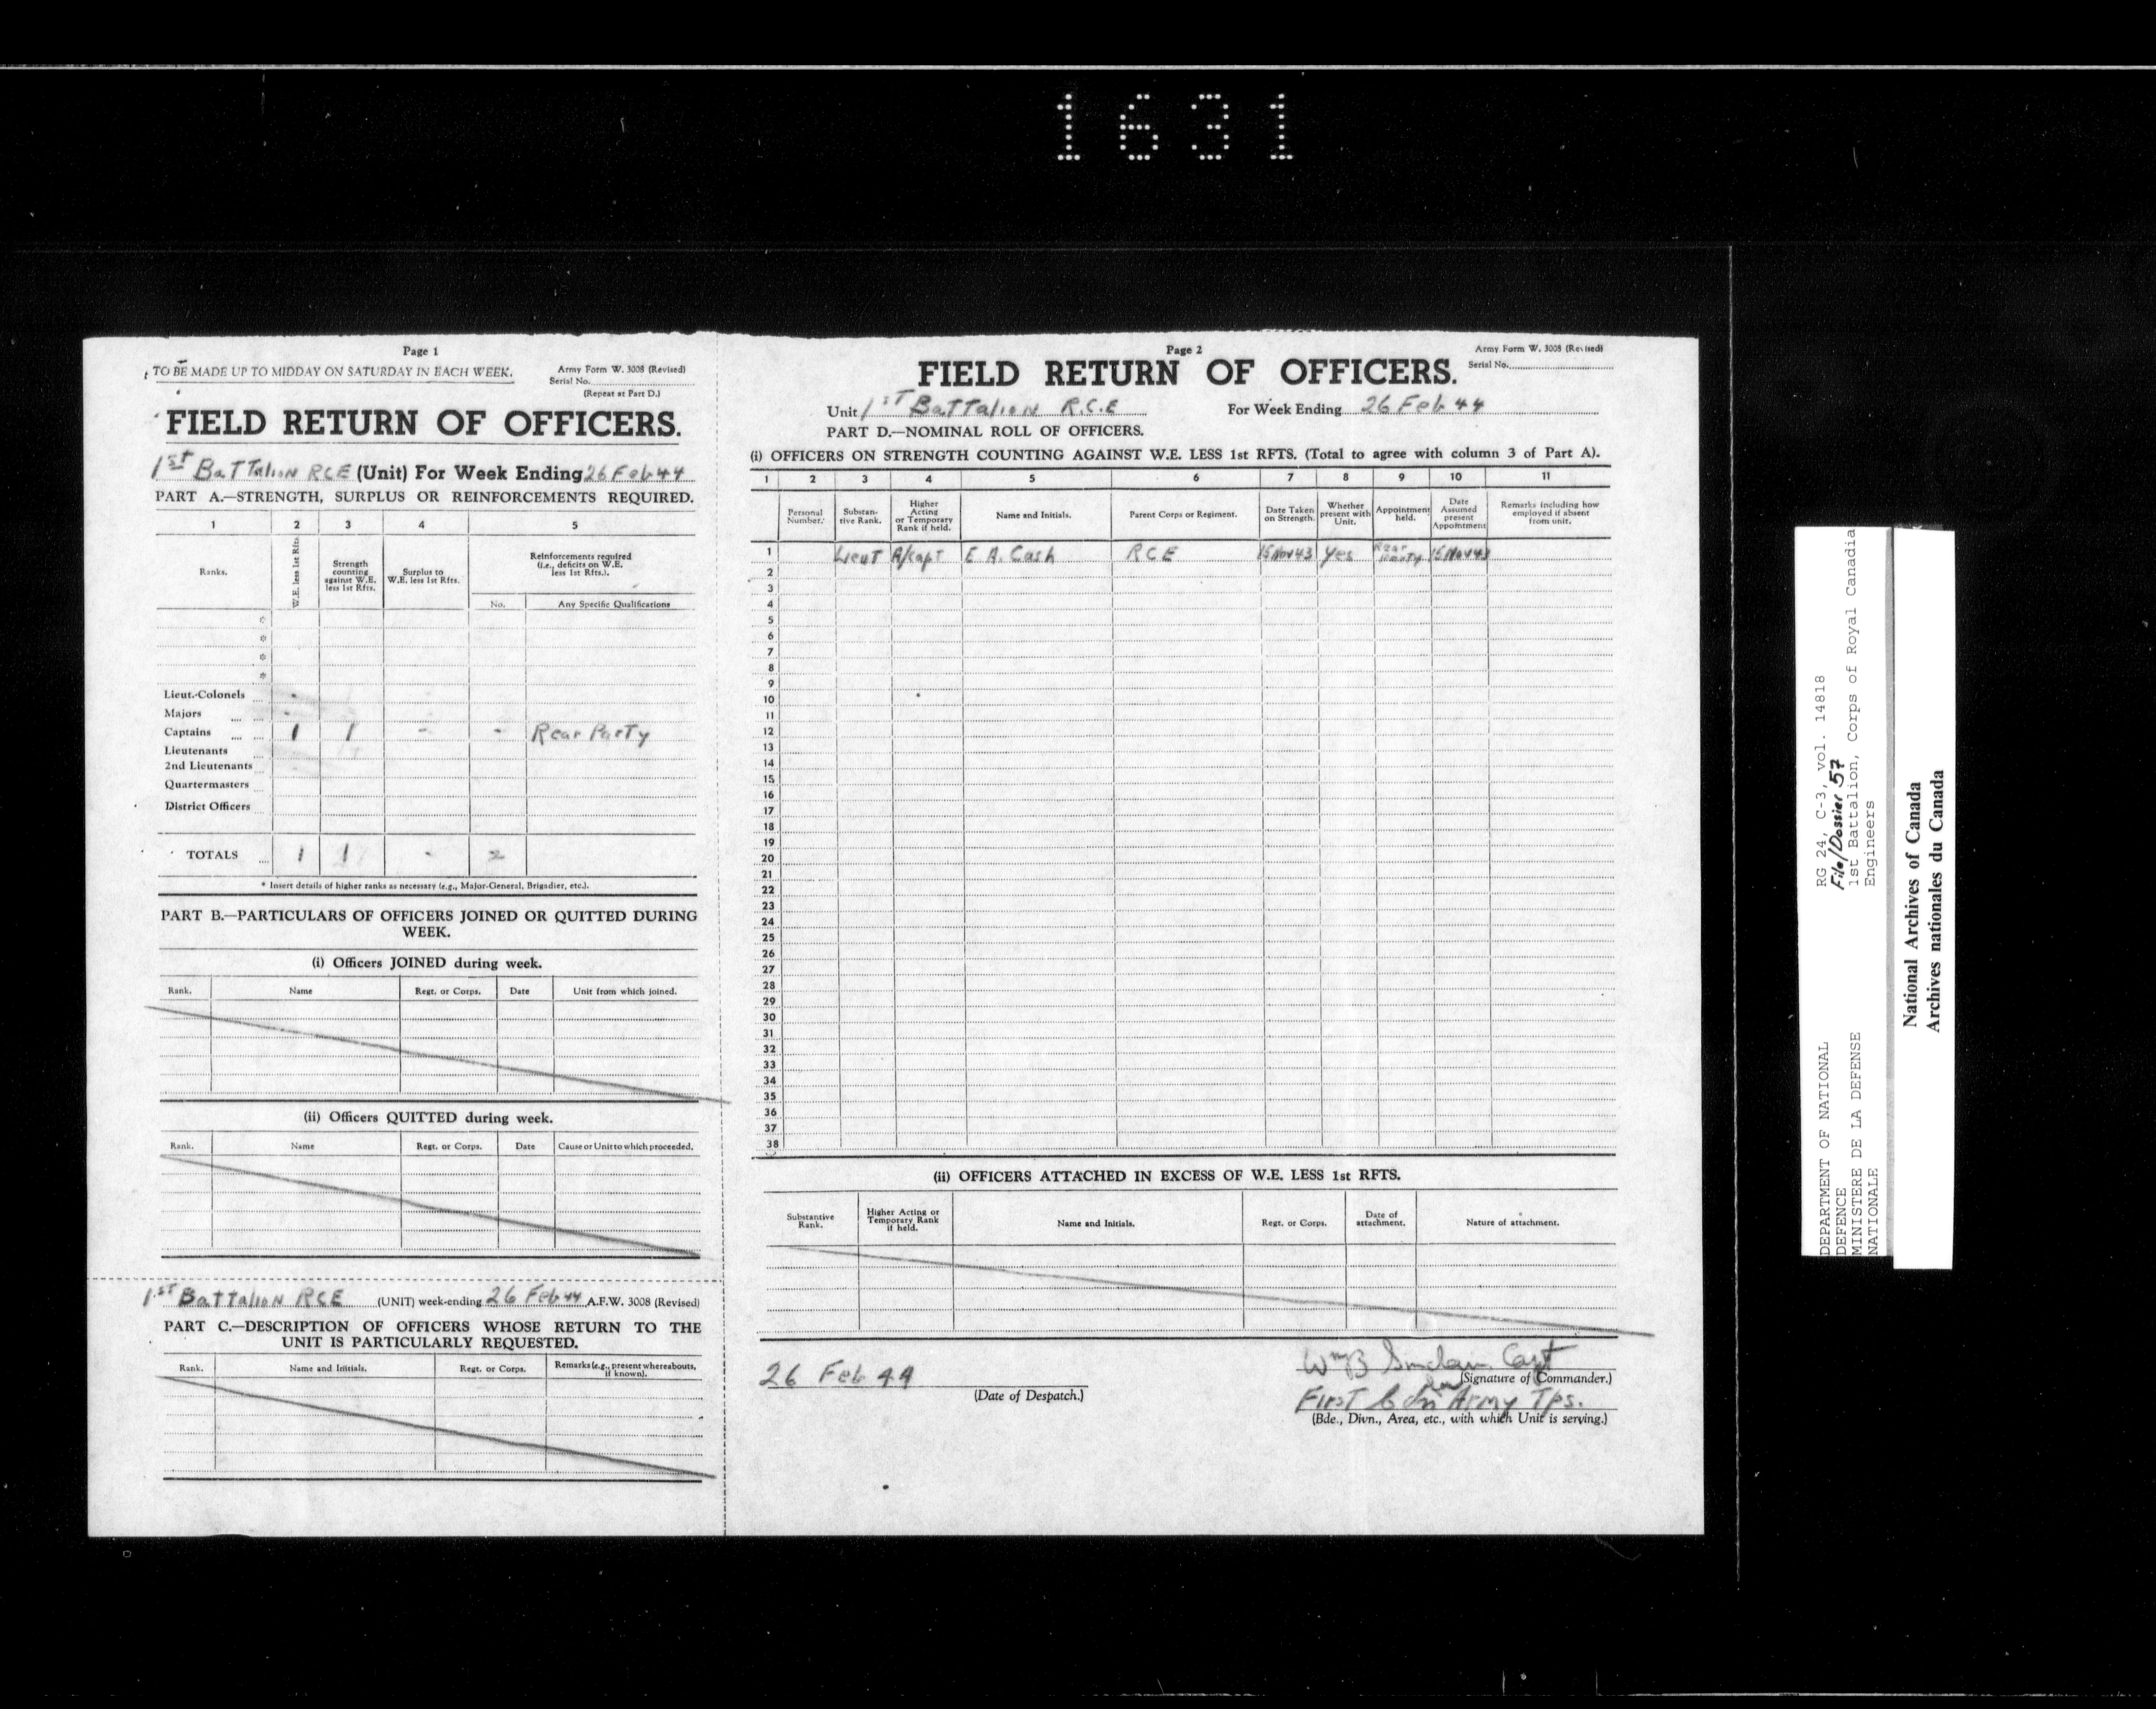 1631
Page 1
TO BE MADE UP TO MIDDAY ON SATURDAY IN EACH WEEK.
Army Form W. 3008 (Revised)
Serial No.
(Repeat at Part D.)
FIELD RETURN OF OFFICERS.
1st Battalion RCE (Unit) For Week Ending 26 Feb 44
PART A.—STRENGTH, SURPLUS OR REINFORCEMENTS REQUIRED.
1 2 3 4 5
Ranks.
W.E. less 1st Rfts.
Strength counting against W.E. less 1st Rfts.
Surplus to W.E. less 1st Rfts.
Reinforcements required (i.e., deficits on W.E. less 1st Rfts.).
No. Any Specific Qualifications
*
*
*
*
Lieut.-Colonels -
Majors -
Captains 1 1 - - Rear Party
Lieutenants
2nd Lieutenants
Quartermasters
District Officers
TOTALS 1 1 -
* Insert details of higher ranks as necessary (e.g., Major-General, Brigadier, etc.).
PART B.—PARTICULARS OF OFFICERS JOINED OR QUITTED DURING
WEEK.
(i) Officers JOINED during week.
Rank. Name Regt. or Corps. Date Unit from which joined.
(ii) Officers QUITTED during week.
Rank. Name Regt. or Corps. Date Cause or Unit to which proceeded.
1st Battalion RCE (UNIT) week-ending 26 Feb 44 A.F.W. 3008 (Revised)
PART C.—DESCRIPTION OF OFFICERS WHOSE RETURN TO THE
UNIT IS PARTICULARLY REQUESTED.
Rank. Name and Initials. Regt. or Corps. Remarks (e.g., present whereabouts, if known).
Page 2
Army Form W. 3008 (Revised)
Serial No.
FIELD RETURN OF OFFICERS.
Unit 1st Battalion R.C.E For Week Ending 26 Feb 44
PART D.—NOMINAL ROLL OF OFFICERS.
(i) OFFICERS ON STRENGTH COUNTING AGAINST W.E. LESS 1st RFTS. (Total to agree with column 3 of Part A).
1 2 3 4 5 6 7 8 9 10 11
Personal Number.
Substantive Rank.
Higher Acting or Temporary Rank if held.
Name and Initials.
Parent Corps or Regiment.
Date Taken on Strength.
Whether present with Unit.
Appointment held.
Date Assumed present Appointment
Remarks including how employed if absent from unit.
1 Lieut A/Capt E. A. Cash RCE 15 Nov 43 Yes Rear Party 15 Nov 43
2
3
4
5
6
7
8
9
10
11
12
13
14
15
16
17
18
19
20
21
22
23
24
25
26
27
28
29
30
31
32
33
34
35
36
37
38
(ii) OFFICERS ATTACHED IN EXCESS OF W.E. LESS 1st RFTS.
Substantive Rank.
Higher Acting or Temporary Rank if held.
Name and Initials.
Regt. or Corps.
Date of attachment.
Nature of attachment.
26 Feb 44
(Date of Despatch.)
Wm B Sinclair Capt
(Signature of Commander.)
First Cdn Army Tps.
(Bde., Divn., Area, etc., with which Unit is serving.)
DEPARTMENT OF NATIONAL
DEFENCE
MINISTERE DE LA DEFENSE
NATIONALE
RG 24, C-3, vol. 14818
File/Dossier 57
1st Battalion, Corps of Royal Canadia
Engineers
National Archives of Canada
Archives nationales du Canada